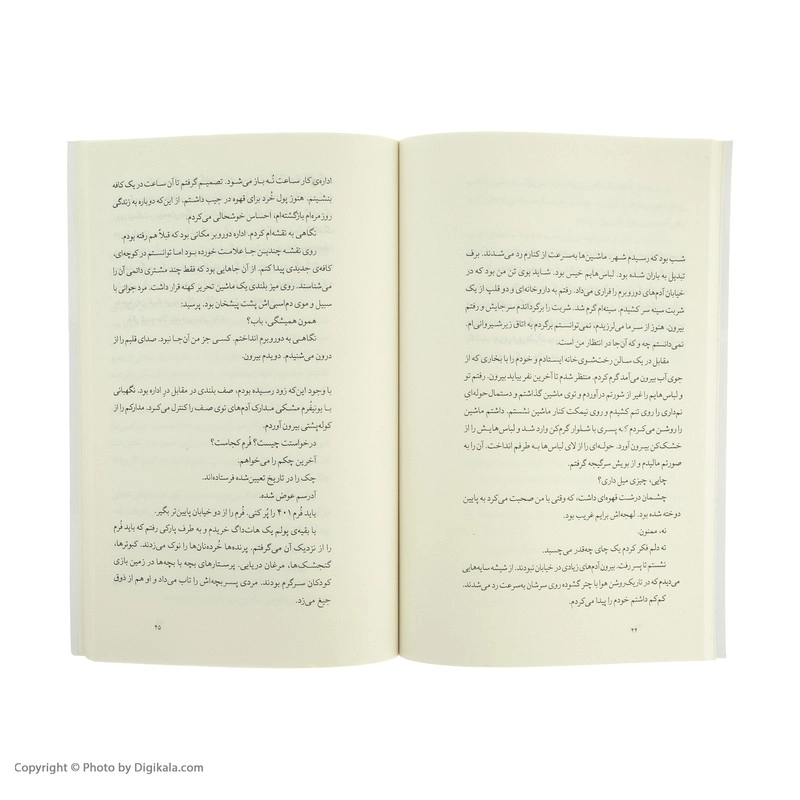 شب بود که رسیدم شهر. ماشین‌ها به‌سرعت از کنارم رد می‌شدند. برف
تبدیل به باران شده بود. لباس‌هایم خیس بود. شاید بوی تن من بود که در
خیابان آدم‌های دوروبرم را فراری می‌داد. رفتم به داروخانه‌ای و دو قلپ از یک
شربت سینه سر کشیدم. سینه‌ام گرم شد. شربت را برگرداندم سرجایش و رفتم
بیرون. هنوز از سرما می‌لرزیدم، نمی‌توانستم برگردم به اتاق زیرشیروانی‌ام.
نمی‌دانستم چه و که آن‌جا در انتظار من است.
مقابل در یک سالن رخت‌شوی‌خانه ایستادم و خودم را با بخاری که از
جوی آب بیرون می‌آمد گرم کردم. منتظر شدم تا آخرین نفر بیاید بیرون. رفتم تو
و لباس‌هایم را غیر از شورتم درآوردم و توی ماشین گذاشتم و دستمال‌حوله‌ای
نم‌داری را روی تنم کشیدم و روی نیمکت کنار ماشین نشستم. داشتم ماشین
را روشن می‌کردم که پسری با شلوار گرم‌کن وارد شد و لباس‌هایش را از
خشک‌کن بیرون آورد. حوله‌ای را از لای لباس‌ها به طرفم انداخت. آن را به
صورتم مالیدم و از بویش سرگیجه گرفتم.
چایی، چیزی میل داری؟
چشمان درشت قهوه‌ای داشت، که وقتی با من صحبت می‌کرد به پایین
دوخته شده بود. لهجه‌اش برایم غریب بود.
نه، ممنون.
ته دلم فکر کردم یک چای چه‌قدر می‌چسبد.
نشستم تا پسر رفت. بیرون آدم‌های زیادی در خیابان نبودند. از شیشه سایه‌هایی
می‌دیدم که در تاریک‌روشن هوا با چتر گشوده روی سرشان به‌سرعت رد می‌شدند.
کم‌کم داشتم خودم را پیدا می‌کردم.
۲۴
اداره‌ی کار ساعت نُه باز می‌شود. تصمیم گرفتم تا آن ساعت در یک کافه
بنشینم. هنوز پول خُرد برای قهوه در جیب داشتم. از این‌که دوباره به زندگی
روزمره‌ام بازگشته‌ام، احساس خوشحالی می‌کردم.
نگاهی به نقشه‌ام کردم. اداره دوروبر مکانی بود که قبلاً هم رفته بودم.
روی نقشه چندین جا علامت خورده بود اما توانستم در کوچه‌ای،
کافه‌ی جدیدی پیدا کنم. از آن جاهایی بود که فقط چند مشتری دائمی آن را
می‌شناسند. روی میز بلندی یک ماشین تحریر کهنه قرار داشت. مرد جوانی با
سبیل و موی دم‌اسبی‌اش پشت پیشخان بود. پرسید:
همون همیشگی، باب؟
نگاهی به دوروبرم انداختم. کسی جز من آن‌جا نبود. صدای قلبم را از
درون می‌شنیدم. دویدم بیرون.
با وجود این‌که زود رسیده بودم، صف بلندی در مقابل درِ اداره بود. نگهبانی
با یونیفُرم مشکی مدارک آدم‌های توی صف را کنترل می‌کرد. مدارکم را از
کوله‌پشتی بیرون آوردم.
درخواستت چیست؟ فُرم کجاست؟
آخرین چکم را می‌خواهم.
چک را در تاریخ تعیین‌شده فرستاده‌اند.
آدرسم عوض شده.
باید فُرم ۴۰۱ را پُر کنی. فُرم را از دو خیابان پایین‌تر بگیر.
با بقیه‌ی پولم یک هات‌داگ خریدم و به طرف پارکی رفتم که باید فُرم
را از نزدیک آن می‌گرفتم. پرنده‌ها خُرده‌نان‌ها را نوک می‌زدند. کبوترها،
گنجشک‌ها، مرغان دریایی. پرستارهای بچه با بچه‌ها در زمین بازی
کودکان سرگرم بودند. مردی پسربچه‌اش را تاب می‌داد و او هم از ذوق
جیغ می‌زد.
۲۵
Copyright © Photo by Digikala.com